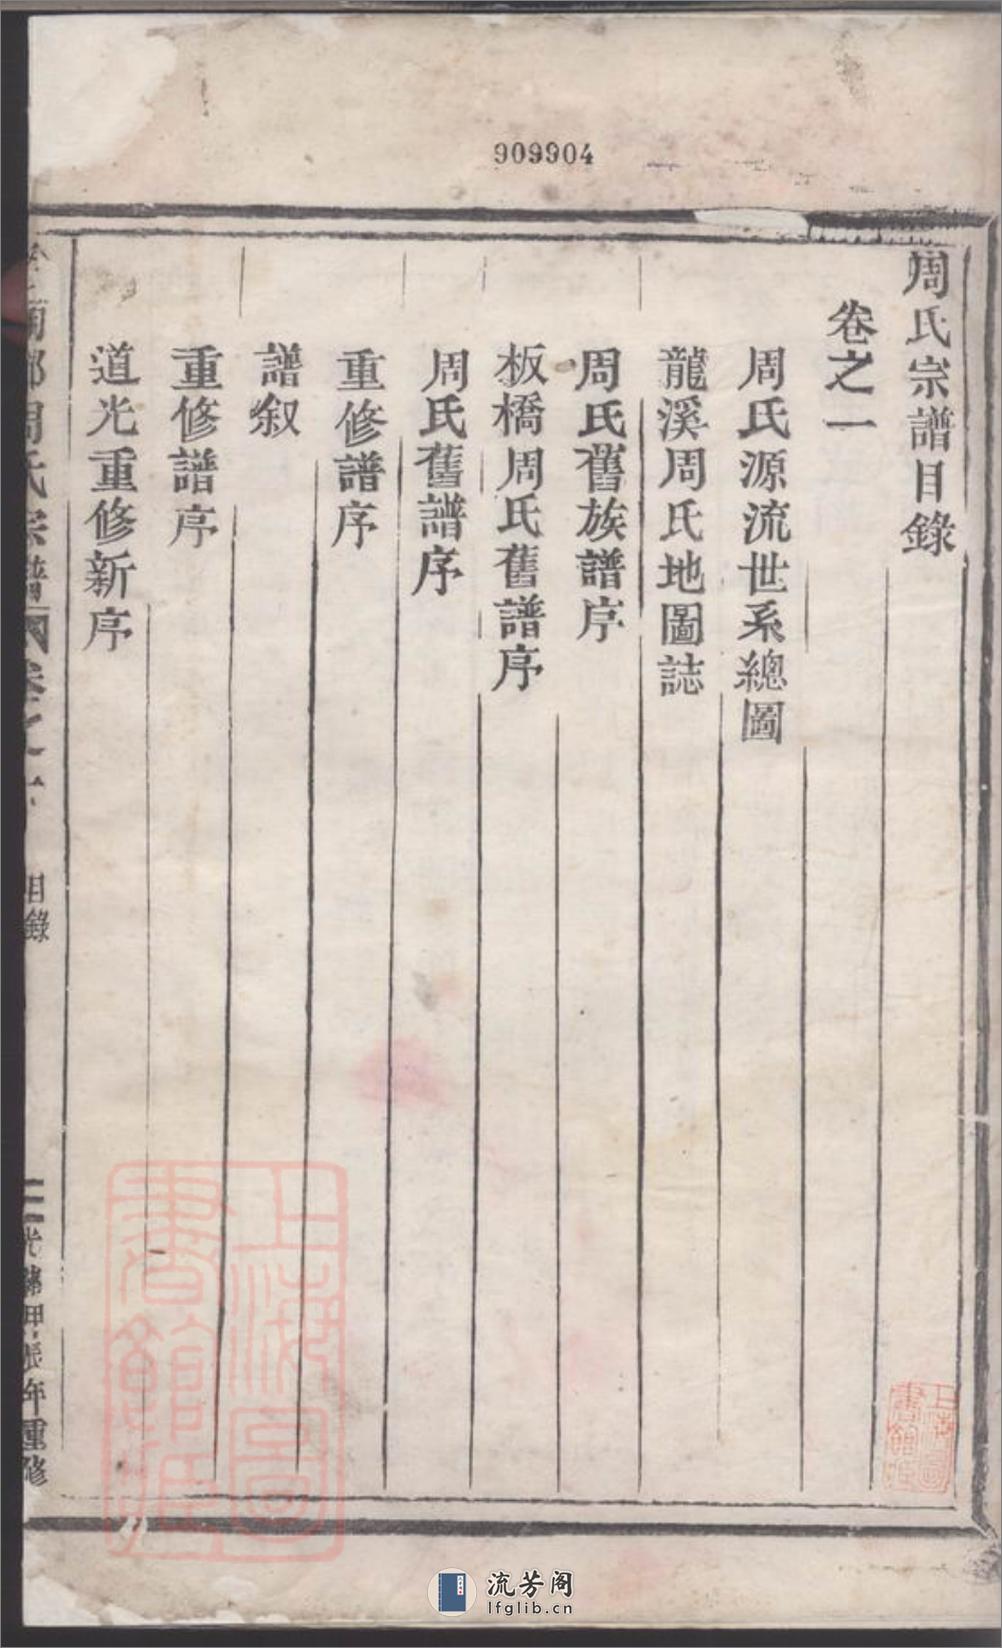 909904
周氏宗譜目錄
卷之一
周氏源流世系總圖
龍溪周氏地圖誌
周氏舊族譜序
板橋周氏舊譜序
周氏舊譜序
重修譜序
譜叙
重修譜序
道光重修新序
周氏宗譜
卷之
目錄
光緒甲辰年重修
上海圖書館藏
上海圖書館藏
流芳阁
lfglib.cn